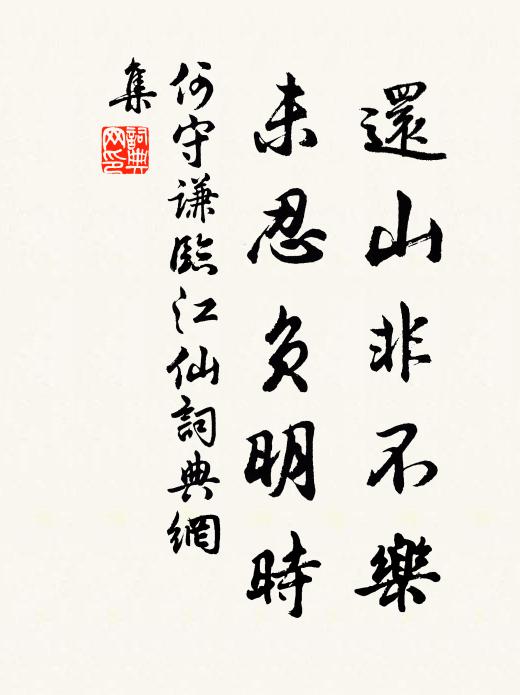 還山非不樂
未忍負明時
何守謙臨江仙詞典網
集
詞典
网印